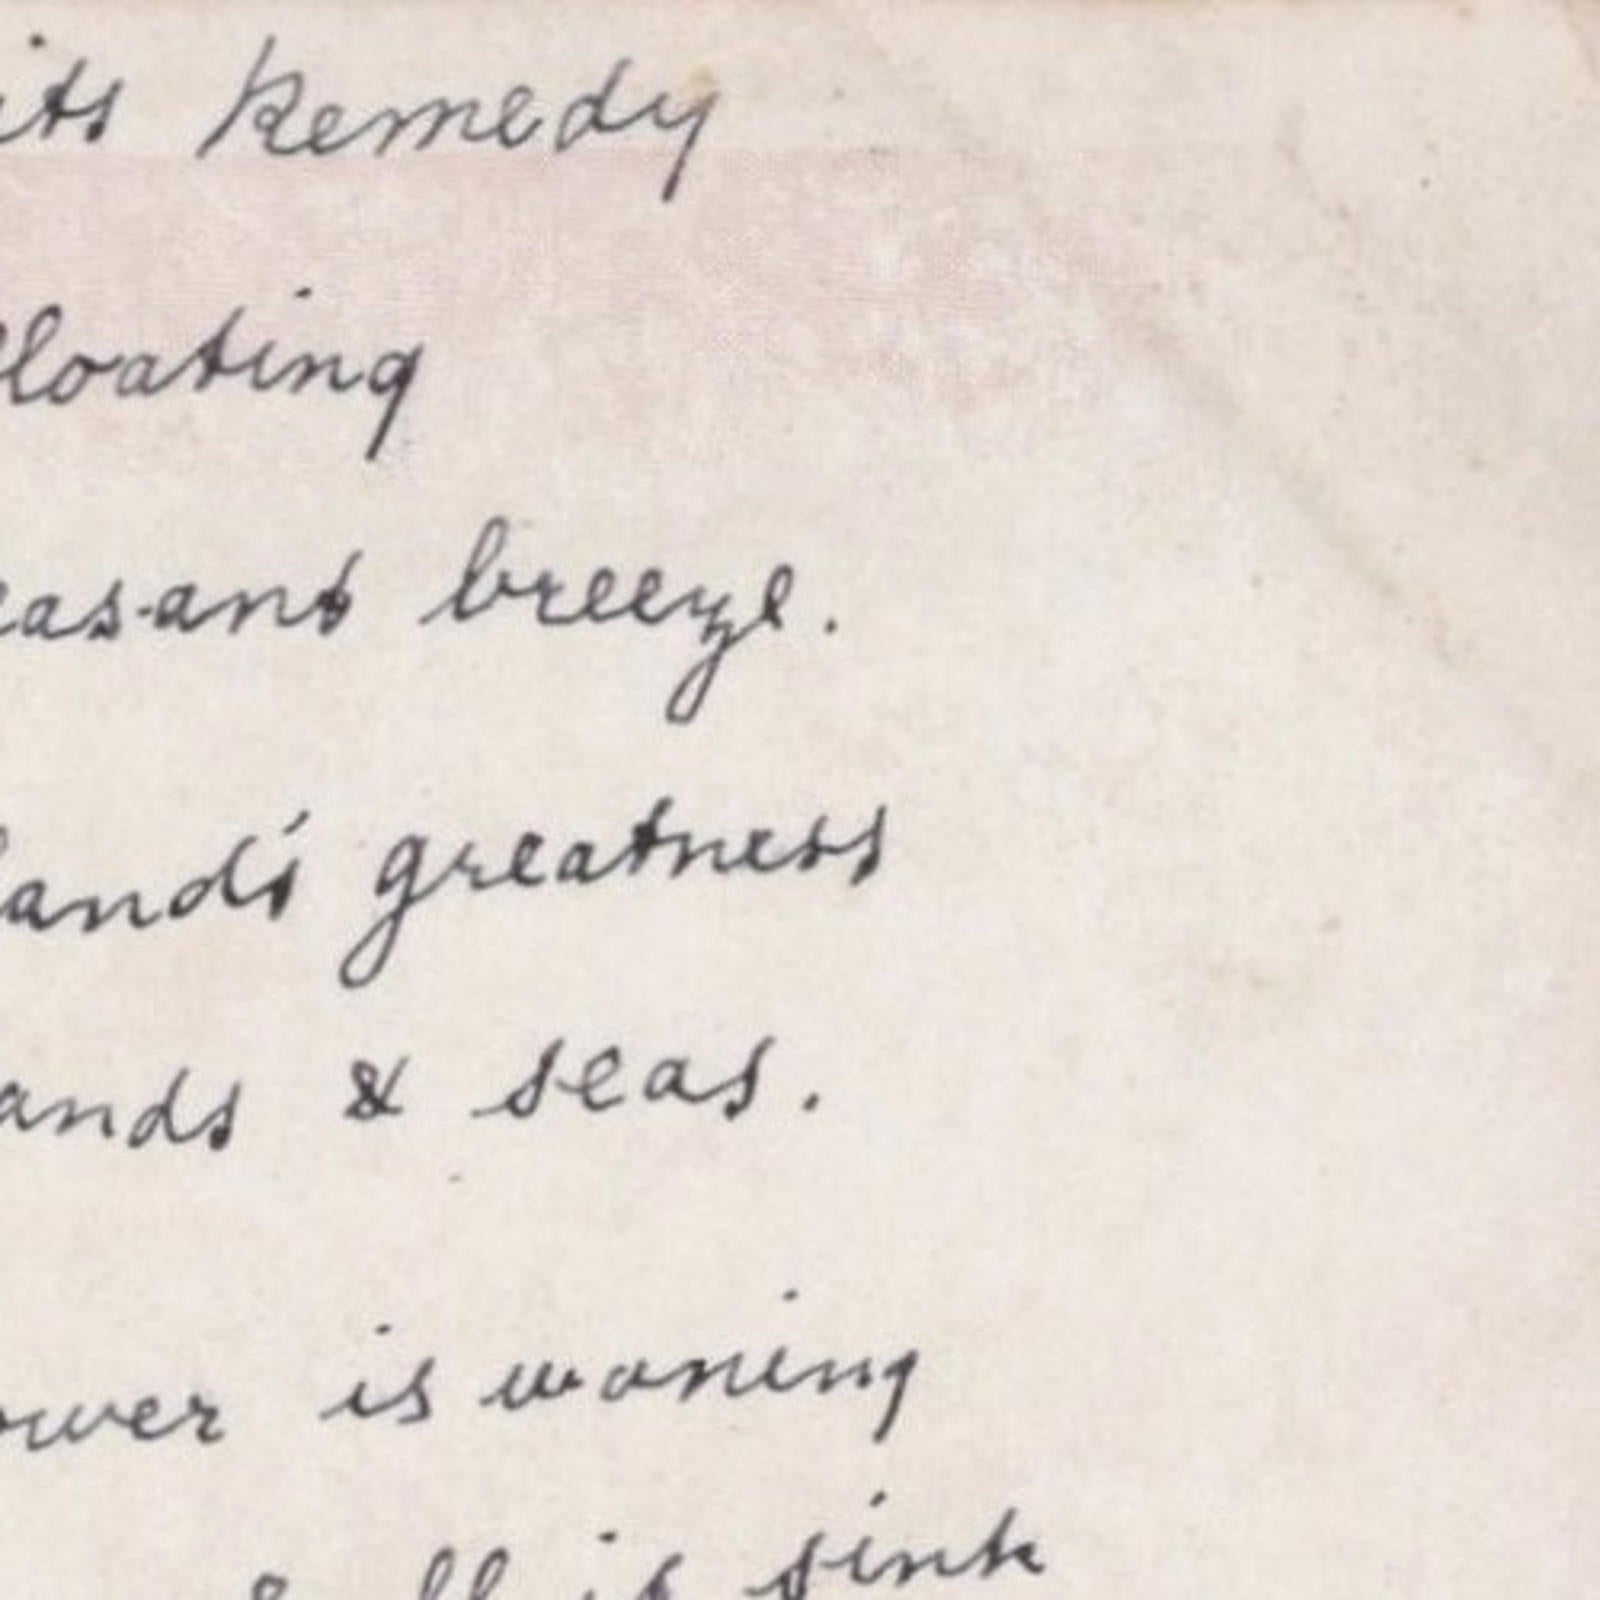 its Remedy
loating
easant breeze.
land's greatness
ands & seas.
ower is waning
it sink